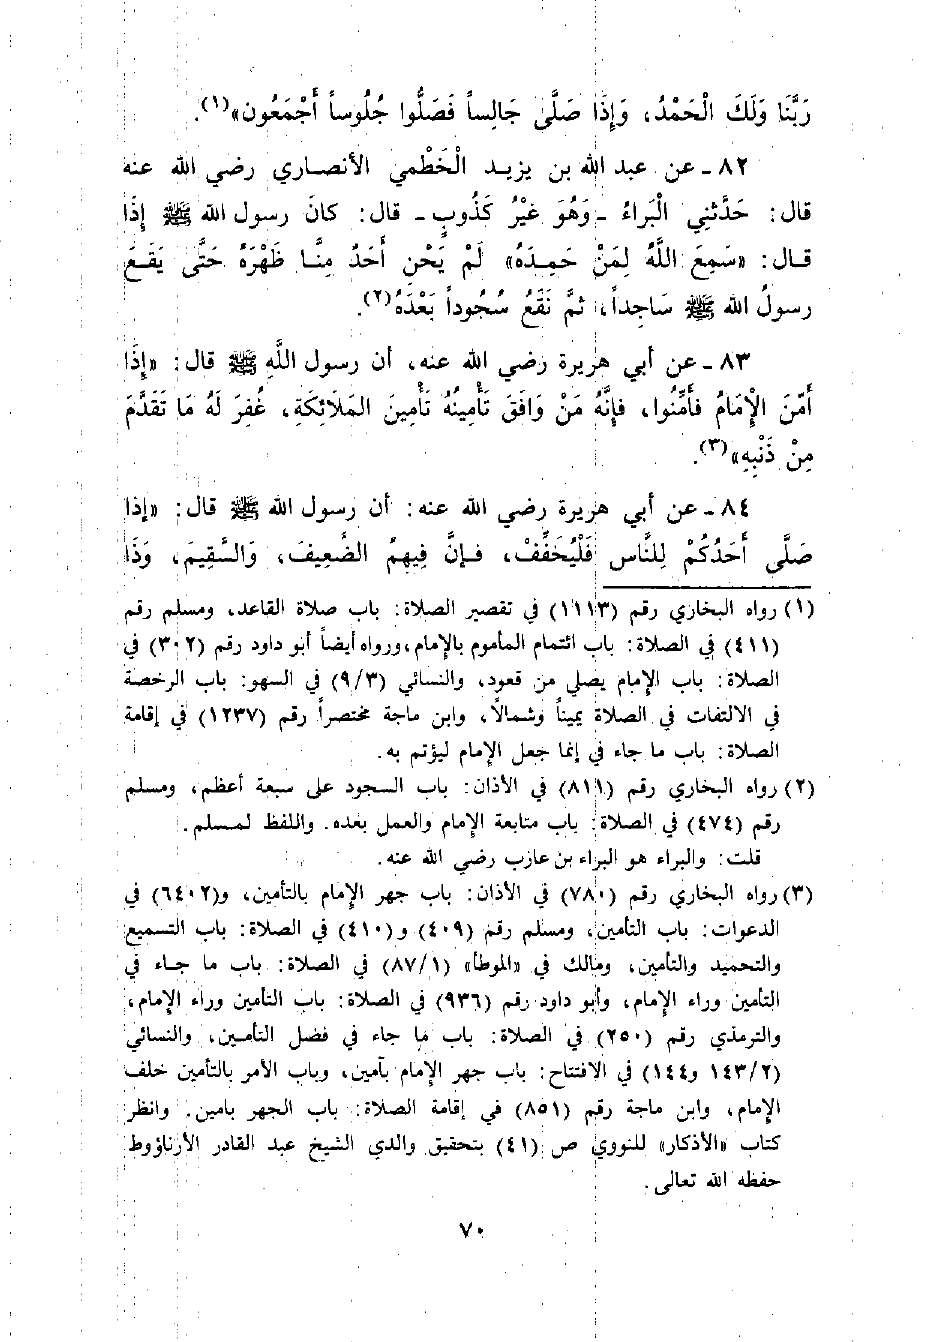 رَبَّنَا وَلَكَ الْحَمْدُ، وَإِذَا صَلَّى جَالِساً فَصَلُّوا جُلُوساً أَجْمَعُون»(١).
٨٢ ـ عن عبد الله بن يزيد الْخَطْمي الأنصاري رضي الله عنه
قال: حَدَّثنِي الْبَراءُ ـ وَهُوَ غَيْرُ كَذُوبٍ ـ قال: كانَ رسول الله ﷺ إِذَا
قال: «سَمِعَ اللَّهُ لِمَنْ حَمِدَهُ» لَمْ يَحْنِ أَحَدٌ مِنَّا ظَهْرَهُ حَتَّى يَقَعَ
رسولُ الله ﷺ سَاجِداً، ثمَّ نَقَعُ سُجُوداً بَعْدَهُ(٢).
٨٣ ـ عن أبي هريرة رضي الله عنه، أن رسول اللَّهِ ﷺ قال: «إِذَا
أَمَّنَ الْإِمَامُ فَأَمِّنُوا، فإنَّهُ مَنْ وَافَقَ تَأْمِينُهُ تَأْمِينَ المَلَائِكَةِ، غُفِرَ لَهُ مَا تَقَدَّمَ
مِنْ ذَنْبِهِ»(٣).
٨٤ ـ عن أبي هريرة رضي الله عنه: أن رسول الله ﷺ قال: «إذا
صَلَّى أَحَدُكُمْ لِلنَّاسِ فَلْيُخَفِّفْ، فإنَّ فِيهِمُ الضَّعِيفَ، وَالسَّقِيمَ، وَذَا
(١) رواه البخاري رقم (١١١٣) في تقصير الصلاة: باب صلاة القاعد، ومسلم رقم
(٤١١) في الصلاة: باب ائتمام المأموم بالإمام، ورواه أيضاً أبو داود رقم (٣٠٢) في
الصلاة: باب الإمام يصلي من قعود، والنسائي (٩/٣) في السهو: باب الرخصة
في الالتفات في الصلاة يميناً وشمالاً، وابن ماجة مختصراً رقم (١٢٣٧) في إقامة
الصلاة: باب ما جاء في إنما جعل الإمام ليؤتم به.
(٢) رواه البخاري رقم (٨١١) في الأذان: باب السجود على سبعة أعظم، ومسلم
رقم (٤٧٤) في الصلاة: باب متابعة الإمام والعمل بعده. واللفظ لمسلم.
قلت: والبراء هو البراء بن عازب رضي الله عنه.
(٣) رواه البخاري رقم (٧٨٠) في الأذان: باب جهر الإمام بالتأمين، و(٦٤٠٢) في
الدعوات: باب التأمين، ومسلم رقم (٤٠٩) و(٤١٠) في الصلاة: باب التسميع
والتحميد والتأمين، ومالك في «الموطأ» (٨٧/١) في الصلاة: باب ما جاء في
التأمين وراء الإمام، وأبو داود رقم (٩٣٦) في الصلاة: باب التأمين وراء الإمام،
والترمذي رقم (٢٥٠) في الصلاة: باب ما جاء في فضل التأمين، والنسائي
(١٤٣/٢ و١٤٤) في الافتتاح: باب جهر الإمام بآمين، وباب الأمر بالتأمين خلف
الإمام، وابن ماجة رقم (٨٥١) في إقامة الصلاة: باب الجهر بامين. وانظر
كتاب «الأذكار» للنووي ص (٤١) بتحقيق والدي الشيخ عبد القادر الأرناؤوط
حفظه الله تعالى.
٧٠